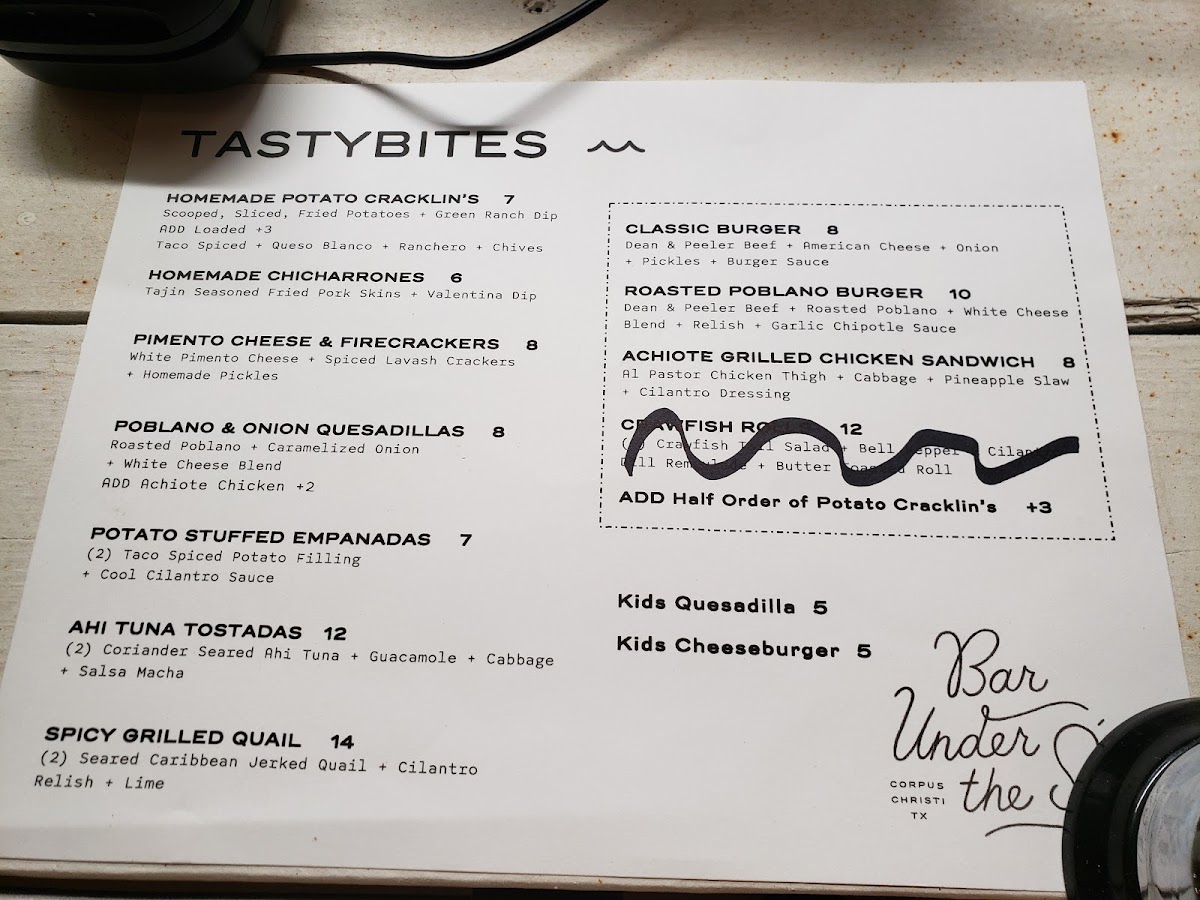 TASTYBITES
HOMEMADE POTATO CRACKLIN'S 7
Scooped, Sliced, Fried Potatoes + Green Ranch Dip
ADD Loaded +3
Taco Spiced + Queso Blanco + Ranchero + Chives
HOMEMADE CHICHARRONES 6
Tajin Seasoned Fried Pork Skins + Valentina Dip
PIMENTO CHEESE & FIRECRACKERS 8
White Pimento Cheese + Spiced Lavash Crackers
+ Homemade Pickles
POBLANO & ONION QUESADILLAS 8
Roasted Poblano + Caramelized Onion
+ White Cheese Blend
ADD Achiote Chicken +2
POTATO STUFFED EMPANADAS 7
(2) Taco Spiced Potato Filling
+ Cool Cilantro Sauce
AHI TUNA TOSTADAS 12
(2) Coriander Seared Ahi Tuna + Guacamole + Cabbage
+ Salsa Macha
SPICY GRILLED QUAIL 14
(2) Seared Caribbean Jerked Quail + Cilantro
Relish + Lime
CLASSIC BURGER 8
Dean & Peeler Beef + American Cheese + Onion
+ Pickles + Burger Sauce
ROASTED POBLANO BURGER 10
Dean & Peeler Beef + Roasted Poblano + White Cheese
Blend + Relish + Garlic Chipotle Sauce
ACHIOTE GRILLED CHICKEN SANDWICH 8
Al Pastor Chicken Thigh + Cabbage + Pineapple Slaw
+ Cilantro Dressing
CRAWFISH ROLLS 12
Crawfish Tail Salad + Bell Pepper
Dill + Butter Toasted Roll
ADD Half Order of Potato Cracklin's +3
Kids Quesadilla 5
Kids Cheeseburger 5
Bar
Under
the
CORPUS
CHRISTI
TX